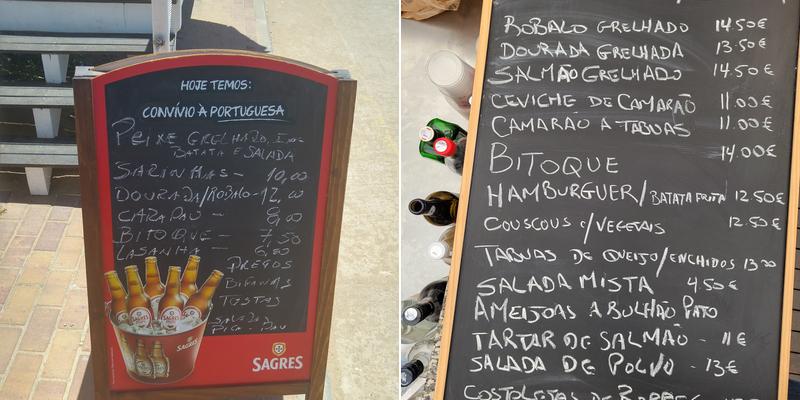 HOJE TEMOS:
CONVÍVIO À PORTUGUESA
PEIXE GRELHADO,
BATATA E SALADA
SARINHAS - 10,00
DOURADA/ROBALO - 12,00
CARAPAU - 8,00
BITOQUE - 7,50
LASANHA - 6,50
PREGOS
BIFANAS
TOSTAS
SALADAS
PICA-PAU
SAGRES
ROBALO GRELHADO 14.50€
DOURADA GRELHADA 13.50€
SALMÃO GRELHADO 14.50€
CEVICHE DE CAMARÃO 11.00€
CAMARÃO A TAQUAS 11.00€
BITOQUE 14.00€
HAMBURGUER/BATATA FRITA 12.50€
COUSCOUS C/VEGETAIS 12.50€
TABUAS DE QUEIJO/ENCHIDOS 13.00
SALADA MISTA 4.50€
AMEIJOAS A BULHÃO PATO
TARTAR DE SALMÃO - 11€
SALADA DE POLVO - 13€
COSTOLETAS DE